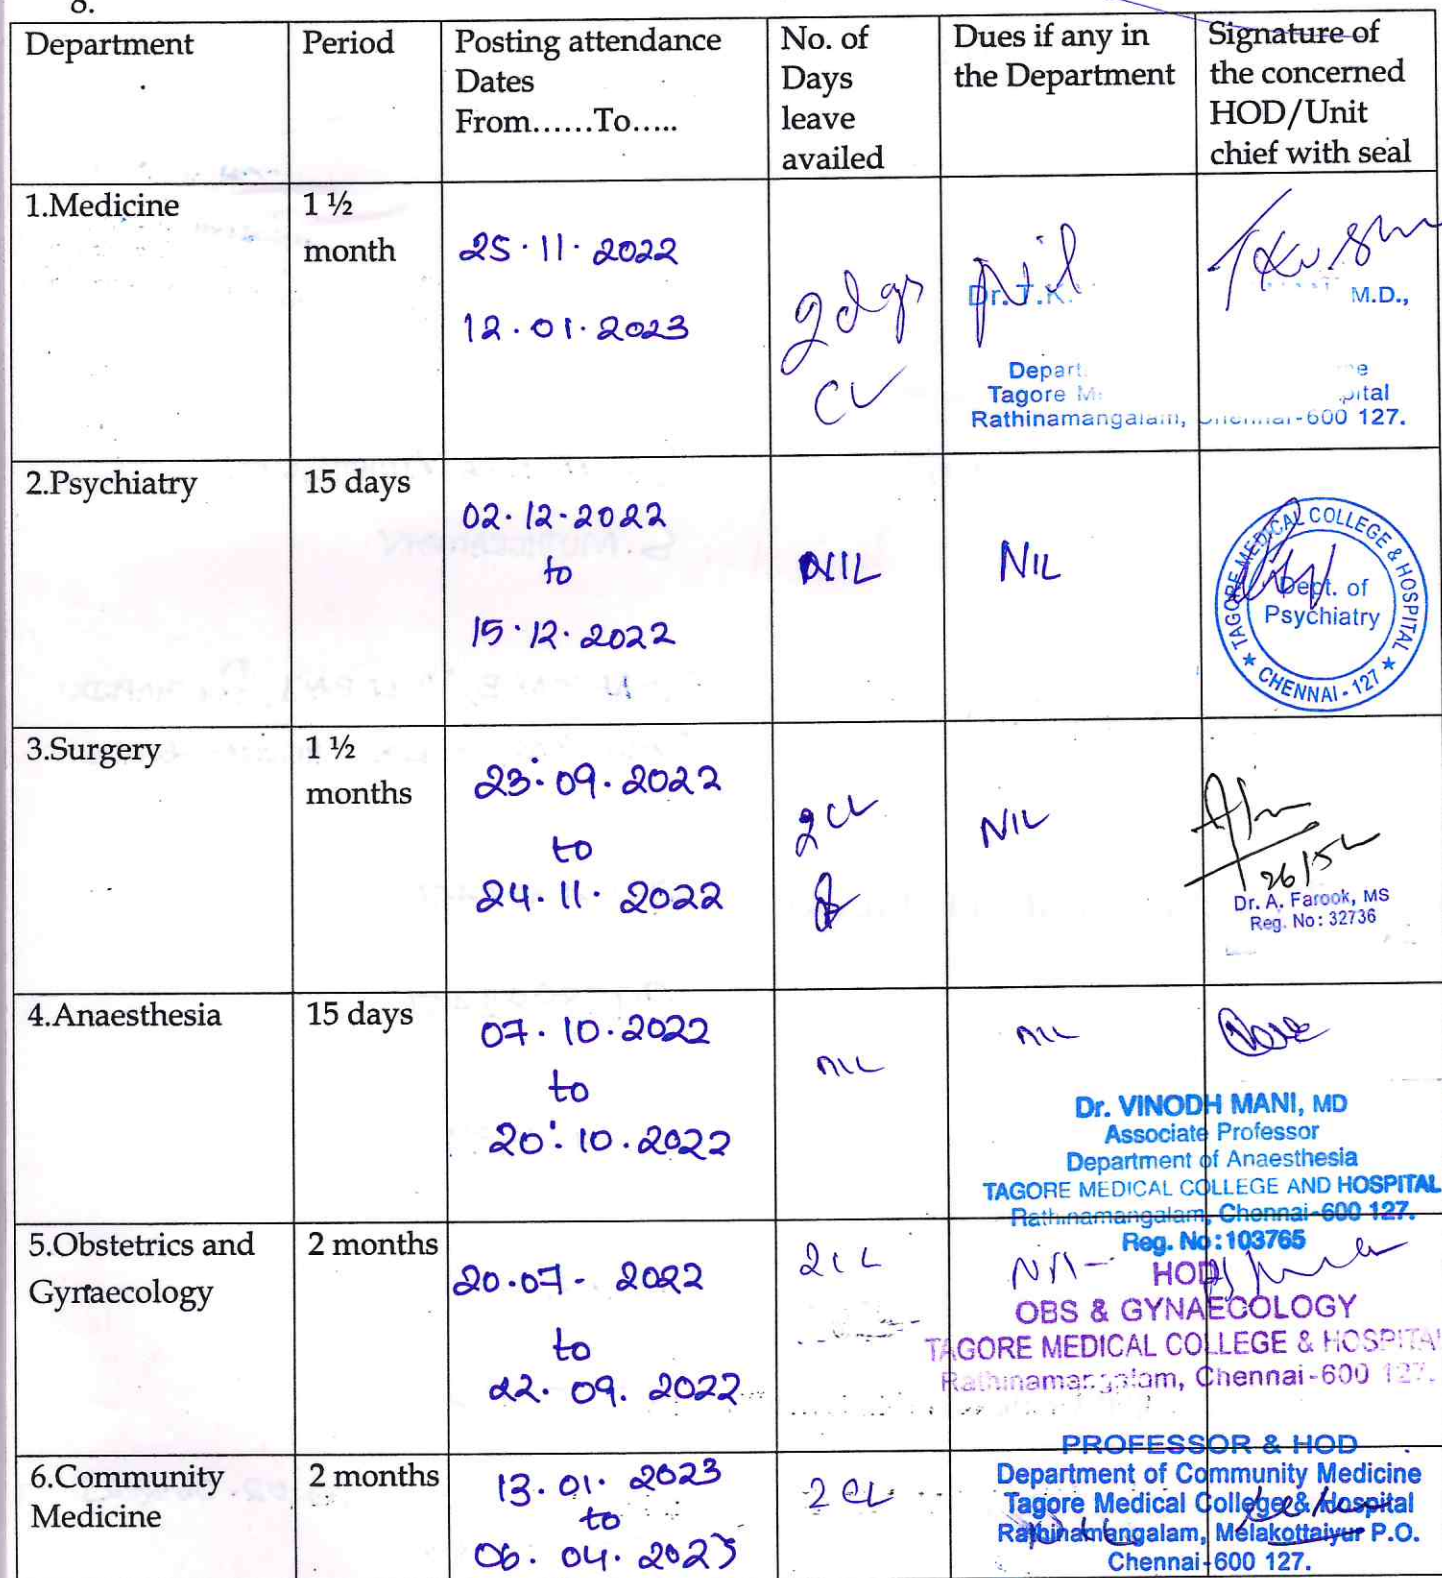 8.
Department
Period
Posting attendance
Dates
From......To.....
No. of
Days
leave
availed
Dues if any in
the Department
Signature of
the concerned
HOD/Unit
chief with seal
1.Medicine
1 ½
month
25.11.2022
12.01.2023
2 dys
CL
Nil
Dr. T.K.
M.D.,
Depart
Tagore M
pital
Rathinamangalam, Chennai-600 127.
2.Psychiatry
15 days
02.12.2022
to
15.12.2022
NIL
NIL
TAGORE MEDICAL COLLEGE & HOSPITAL
Dept. of
Psychiatry
★ CHENNAI - 127 ★
3.Surgery
1 ½
months
23.09.2022
to
24.11.2022
2 CL
NIL
Dr. A. Farook, MS
Reg. No: 32736
4.Anaesthesia
15 days
07.10.2022
to
20.10.2022
NIL
NIL
Dr. VINODH MANI, MD
Associate Professor
Department of Anaesthesia
TAGORE MEDICAL COLLEGE AND HOSPITAL
Rathinamangalam, Chennai-600 127.
Reg. No:103765
5.Obstetrics and
Gynaecology
2 months
20.07- 2022
to
22.09.2022
2 CL
HOD
OBS & GYNAECOLOGY
TAGORE MEDICAL COLLEGE & HOSPITAL
Rathinamangalam, Chennai-600 127.
6.Community
Medicine
2 months
13.01.2023
to
06.04.2023
2 CL
PROFESSOR & HOD
Department of Community Medicine
Tagore Medical College & Hospital
Rathinamangalam, Melakottaiyur P.O.
Chennai-600 127.